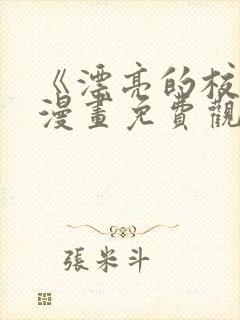 《漂亮的校
漫畫免費觀
張米斗